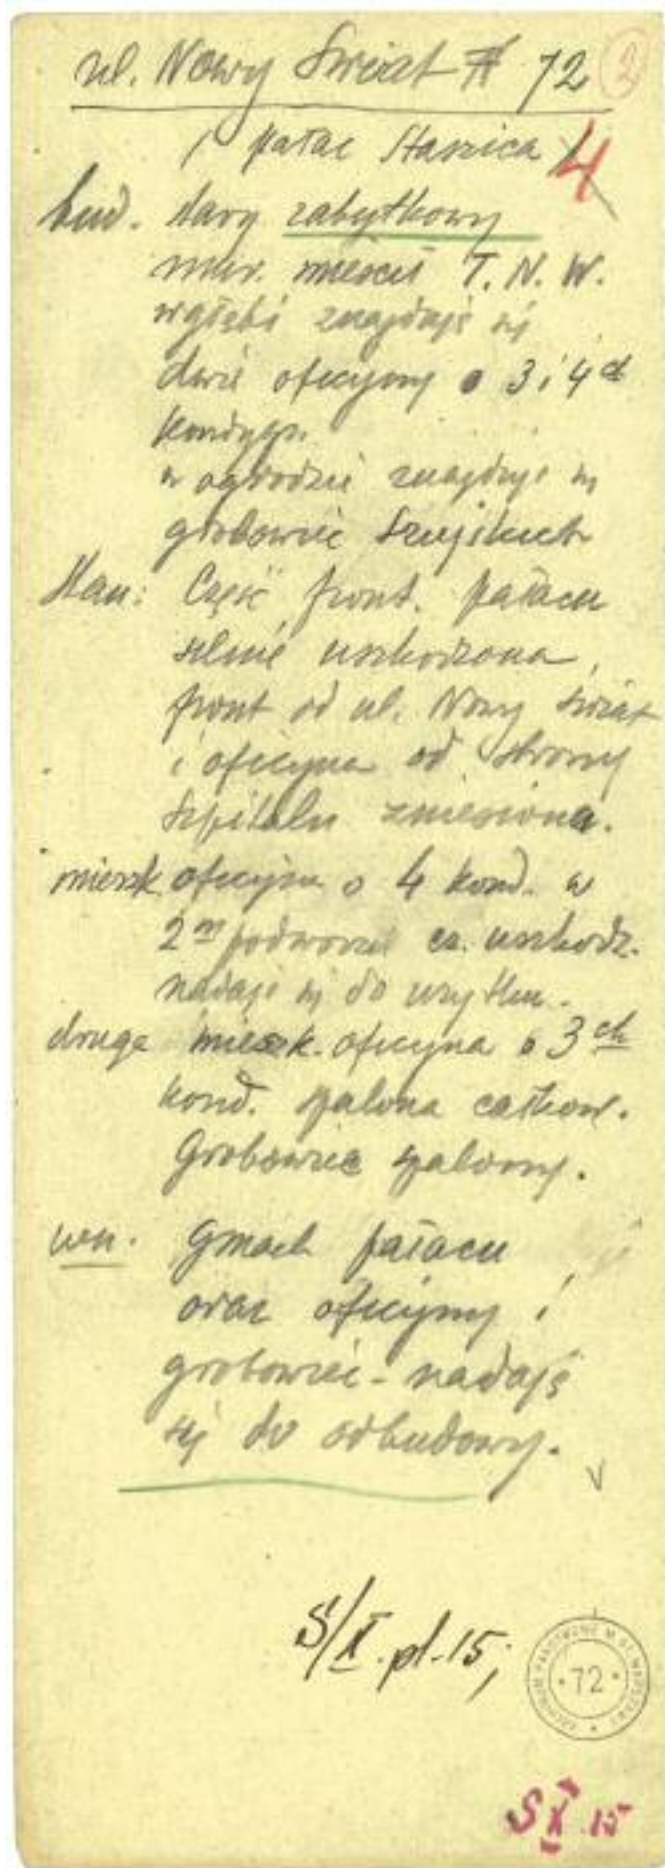 ul. Nowy Świat # 72 2
/ pałac Staszica / 4
bud. stary zabytkowy
mur. mieści T. N. W.
w głębi znajdują się
dwie oficyny o 3 i 4 ch
kondygn.
w ogrodzie znajduje się
grobowiec Szujskich
stan: Część front. pałacu
silnie uszkodzona,
front od ul. Nowy Świat
i oficyna od strony
Szpitala zniesiona.
mieszk. oficyna o 4 kond. w
2 m podwórzu cz. uszkodz.
nadaje się do użytku.
druga mieszk. oficyna o 3 ch
kond. spalona całkow.
Grobowiec spalony.
wn. Gmach pałacu
oraz oficyny i
grobowiec - nadają
się do odbudowy.
S/X. pl. 15;
72
S X 15